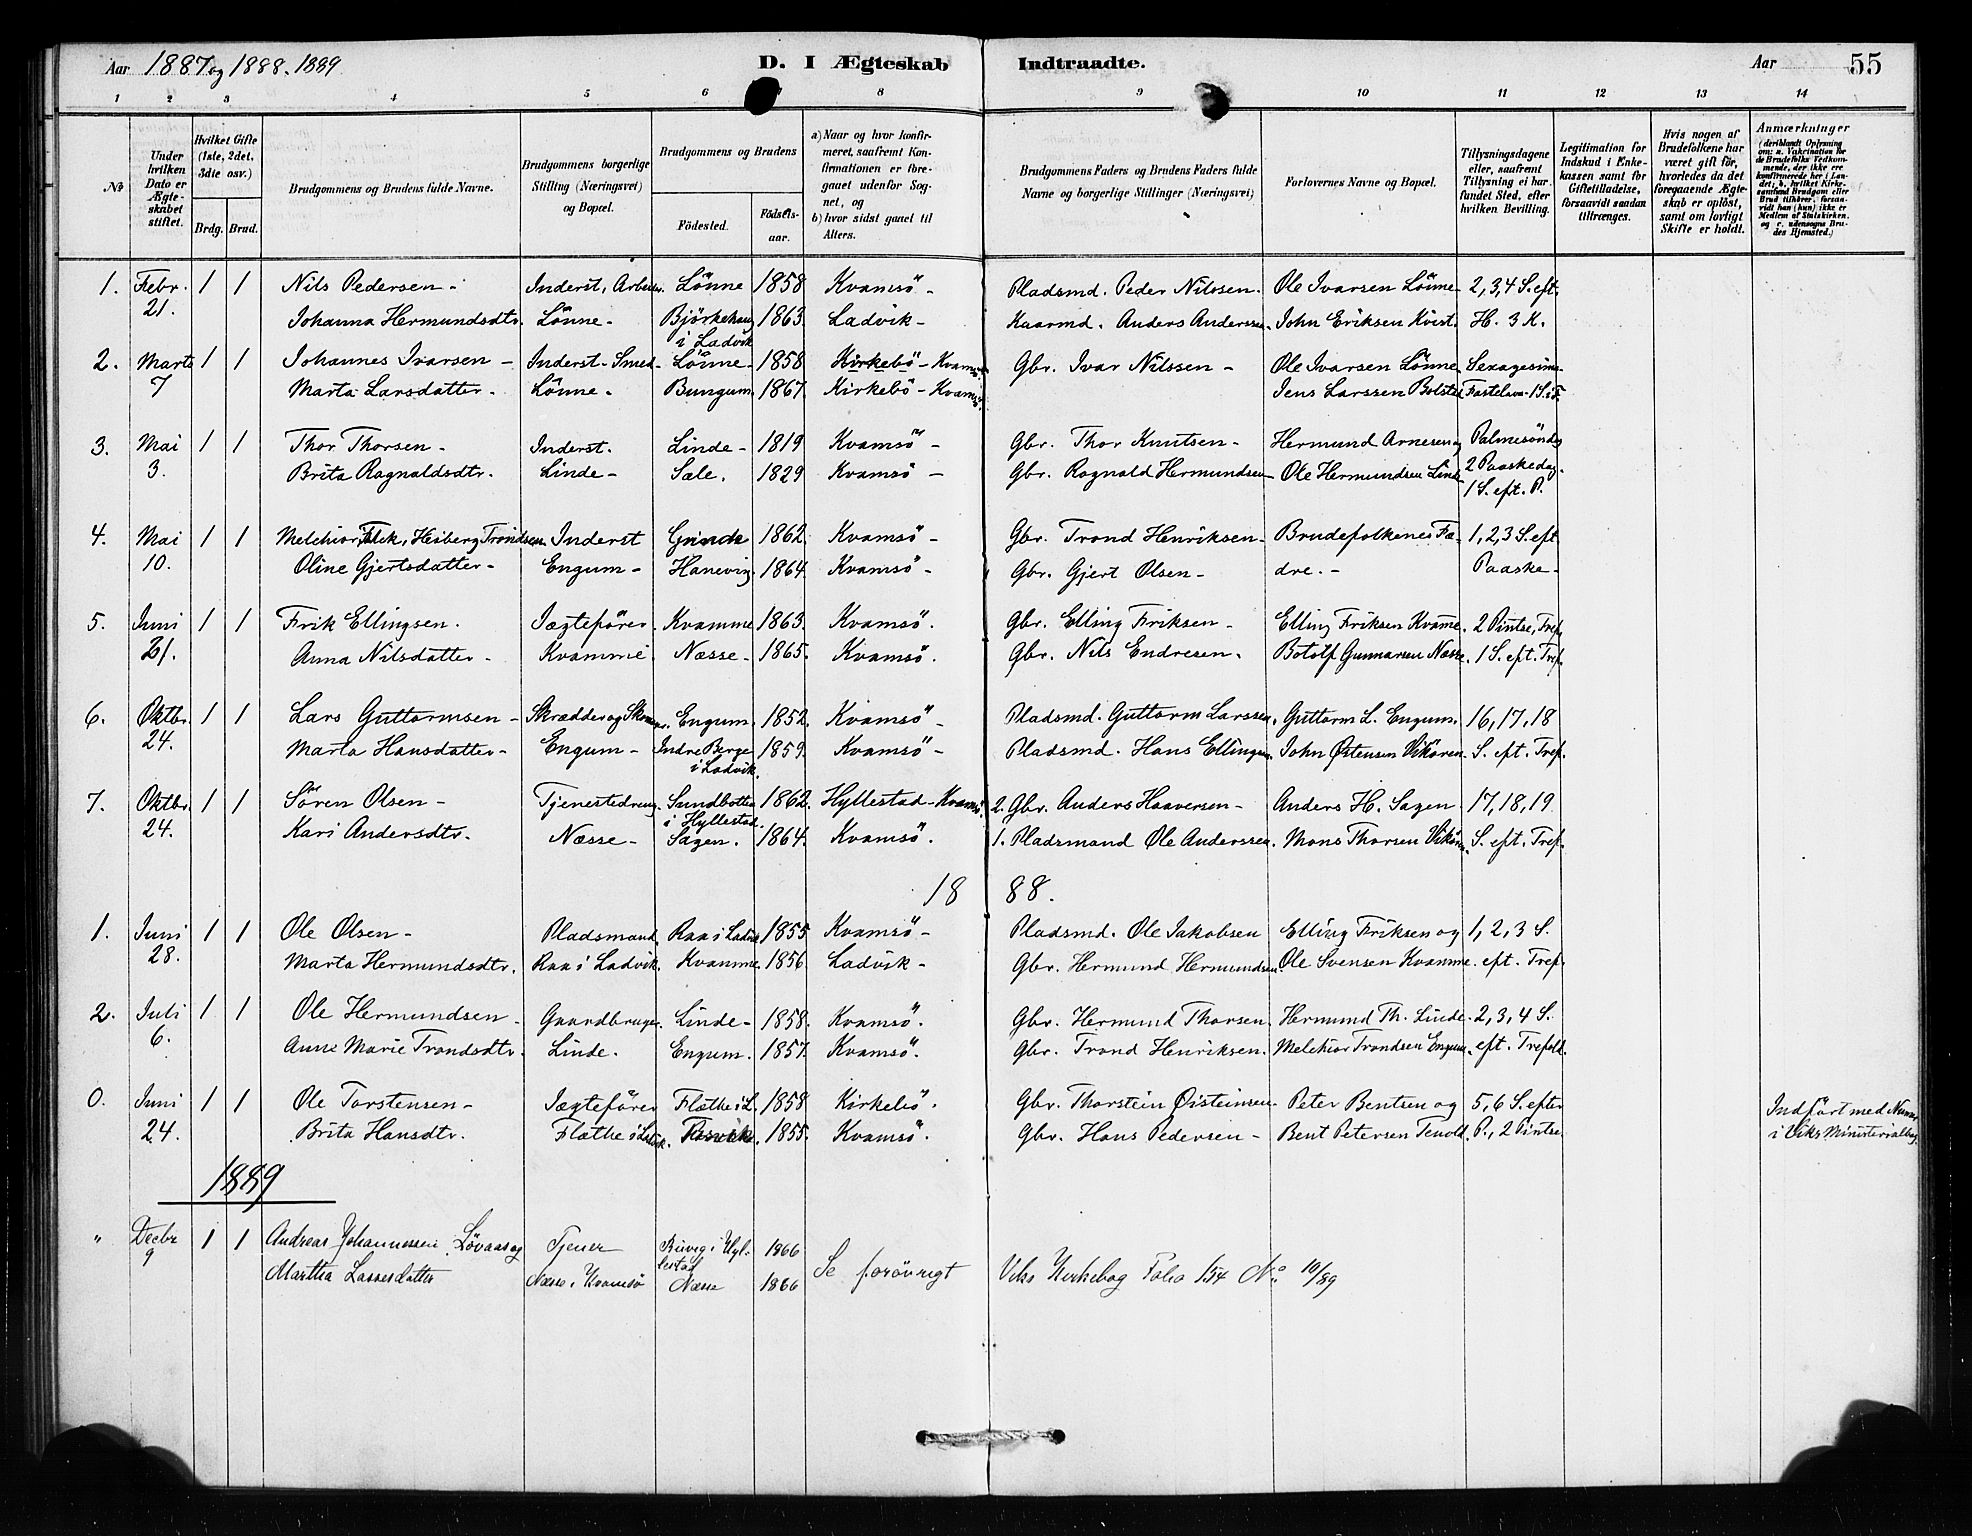 Aar 1887 og 1888. 1889 D. I Ægteskab Indtraadte. Aar 55
1 2 3 4 5 6 8 9 10 11 12 13 14
No
Under hvilken Dato er Ægteskabet stiftet.
Hvilket Gifte (1ste, 2det, 3die osv.)
Brdg. Brud.
Brudgommens og Brudens fulde Navne.
Brudgommens borgerlige Stilling (Næringsvei) og Bopæl.
Brudgommens og Brudens
Fødested. Fødselsaar.
a) Naar og hvor konfirmeret, saafremt Konfirmationen er foregaaet udenfor Sognet, og
b) hvor sidst gaaet til Alters.
Brudgommens Faders og Brudens Faders fulde Navne og borgerlige Stillinger (Næringsvei)
Forlovernes Navne og Bopæl.
Tillysningsdagene eller, saafremt Tillysning ei har fundet Sted, efter hvilken Bevilling.
Legitimation for Indskud i Enkekassen samt for Giftetilladelse, forsaavidt saadan tiltrænges.
Hvis nogen af Brudefolkene har været gift før, hvorledes da det foregaaende Ægteskab er opløst, samt om lovligt Skifte er holdt.
Anmærkninger (deriblandt Oplysning om: a. Vakcination for de Brudefolks Vedkommende, der ikke ere konfirmerede her i Landet; b. hvilket Kirkesamfund Brudgom eller Brud tilhører, forsaavidt han (hun) ikke er Medlem af Statskirken, og c. udensogns Brudes Hjemsted.)
1. Febr. 1 1 Nils Pedersen - Inderst, Arbeider. Lönne 1858 Kvamsö - Pladsmd. Peder Nilssen. Ole Ivarsen Lönne 2, 3, 4 S. eft.
21. Johanna Hermundsdtr. Lönne - Björkehaug 1863. Ladvik - Kaarmd. Anders Anderssen. John Eriksen Kvist. H. 3 K.
i Ladvik
2. Marts 1 1 Johannes Ivarsen - Inderst - Smed - Lönne - 1858 Kirkebö - Kvamsö. Gbr. Ivar Nilssen - Ole Ivarsen Lönne. Sexagesima
7 Marta Larsdatter. Lönne. Bungum. 1867. Kirkebö - Kvamsö. Jens Larssen Bolsted Fastelavn - 1 S. i F.
3. Mai 1 1 Thor Thorsen - Inderst. Linde - 1819 Kvamsö - Gbr. Thor Knutsen - Hermund Arnesen og Palmesöndag
3. Brita Ragnaldsdtr. Linde - Sæle. 1829 Kvamsö - Gbr. Ragnald Hermundsen - Ole Hermundsen Linde 2 Paaskedag.
1 S. eft. P.
4. Mai 1 1 Melchior, Falk, Heiberg Trondsen Inderst Grinde 1862 Kvamsö - Gbr. Trond Henriksen - Brudefolkenes Fæ- 1, 2, 3 S. eft
10. Oline Gjertsdatter - Engum - Hanevig 1864. Kvamsö - Gbr. Gjert Olsen - dre. - Paaske -
5. Juni 1 1 Erik Ellingsen. Jægtefører. Kvamme 1863. Kvamsö. Gbr. Elling Eriksen - Elling Eriksen Kvame. 2 Pintse, Tref,
21. Anna Nilsdatter - Kvamme. Næsse - 1865. Kvamsö. Gbr. Nils Endresen. Botolf Gunnarsen Næsse. 1 S. eft. Tref.
6. Oktbr. 1 1 Lars Guttormsen - Skrædder og Skom. Engum. 1852. Kvamsö - Pladsmd. Guttorm Larssen. Guttorm L. Engum. 16, 17, 18
24. Marta Hansdatter - Engum - Indre Berge 1859. Kvamsö - Pladsmd. Hans Ellingsen. John Østensen Vikören. S. eft. Tref.
i Ladvik.
7. Oktbr. 1 1 Sören Olsen - Tjenestedreng. Sundbotten 1862. Hyllestad - Kvamsö. 2. Gbr. Anders Haaversen - Anders H. Sagen 17, 18, 19.
i Hyllestad.
24. Kari Andersdtr. Næsse - Sagen. 1864. Kvamsö. 1. Pladsmand Ole Anderssen. Mons Thorsen Vikören. S. eft. Tref.
18 88.
1. Juni 1 1 Ole Olsen - Pladsmand Raa i Ladvik 1855 Kvamsö - Pladsmd. Ole Jakobsen Elling Eriksen og 1, 2, 3 S.
28. Marta Hermundsdtr. Raa i Ladvik. Kvamme 1856 Ladvik - Gbr. Hermund Hermundsen. Ole Svensen Kvamme. eft. Tref.
2. Juli 1 1 Ole Hermundsen - Gaardbruger. Linde - 1858. Kvamsö. Gbr. Hermund Thorsen. Hermund Th. Linde. 2, 3, 4 S.
6. Anne Marie Trondsdtr. Linde. Engum. 1857. Kvamsö. Gbr. Trond Henriksen. Melchior Trondsen Engum. eft. Trefold.
0. Juni 1 1 Ole Torstensen - Jægtefører Flathe i L. 1858. Kirkebö. Gbr. Thorstein Øisteinsen. Peter Bentsen og 5, 6 S. efter Indfört med Numer
24. Brita Hansdtr. Flathe i Ladvik. 1855. Kvamsö. Gbr. Hans Pedersen - Bent Petersen Tenold. P., 2 Pintse. i Viks Ministerialbog.
1889
" Decbr 1 1 Andreas Johannessen Lövaas og Tjener i Hyl- 1866
lestad
9 Martha Lassesdatter Næsse i Kvamsö Næsse 1866 Se forövrigt Viks Kirkebog Folio 154 No 10/89